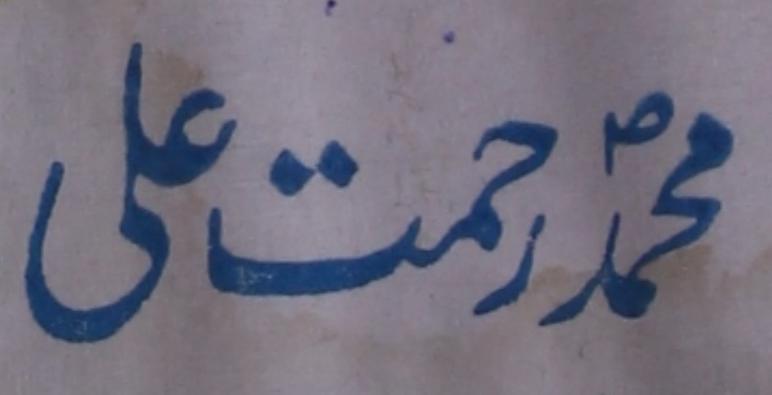 محمدؐ رحمت علی